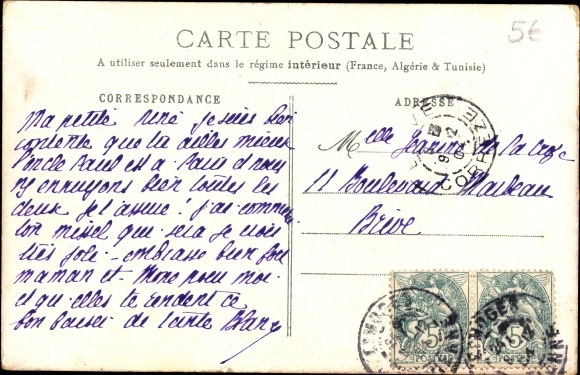 5€
CARTE POSTALE
A utiliser seulement dans le régime intérieur (France, Algérie & Tunisie)
CORRESPONDANCE
ADRESSE
Ma petite je suis bien
contente que tu ailles mieux
l'oncle Paul est a Paris et nous
n/ ennuyons bien toutes les
deux je t'assure! j'ai
ton missel qui sera je crois
très joli - embrasse bien fort
maman et pour moi
et qu'elles te rendent ce
bon baiser de tante
Melle Jeanne de la Croze
11 Boulevard
Brive
CORREZE
5c
POSTES
5c
POSTES
LIMOGES